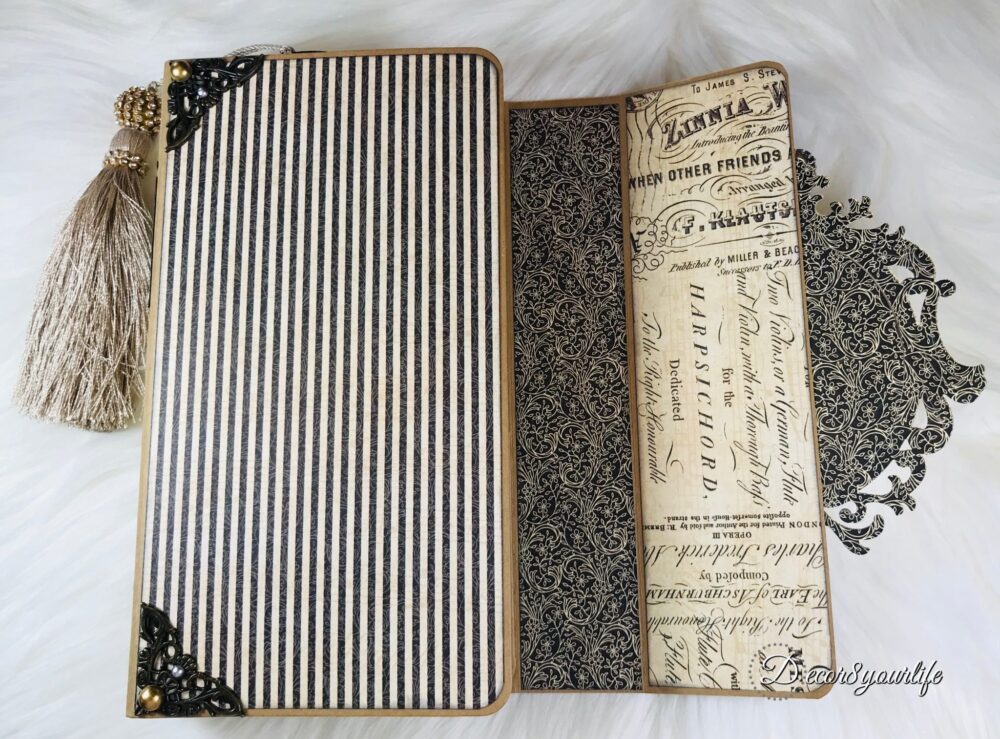 To JAMES S. STEW
ZINNIA W
Introducing the Beauti
WHEN OTHER FRIENDS A
Arranged
F. KLAUTS
Published by MILLER & BEAC
Successors to
Two Violins or a German Flute
and Violin, with a Thorough Bass
for the
HARPSICHORD,
Dedicated
To the Right Honourable
opposite Somerset-House in the Strand.
LONDON Printed for the Author and sold by R: Brem
OPERA III
Charles Frederick A
Composed by
The EARL of ASCHBURNHAM
To the Right Honourable
Flute
with
Decor8yourlife